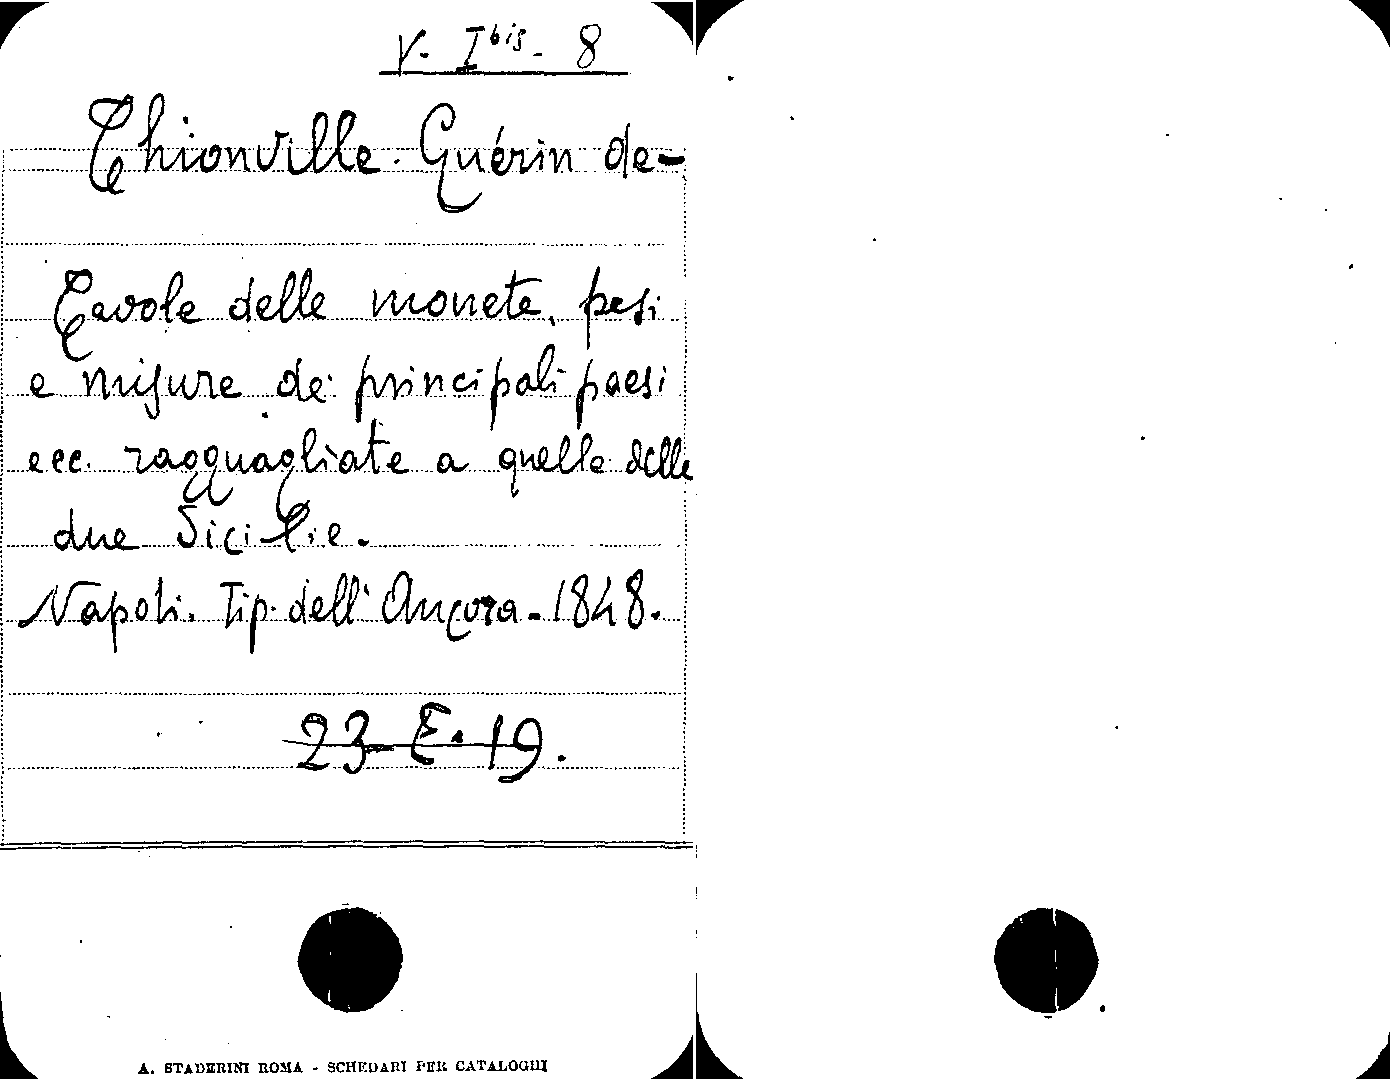 V. I bis - 8
Thionville. Guérin de-
Tavole delle monete, pesi
e misure de' principali paesi
ecc. ragguagliate a quelle delle
due Sicilie.
Napoli. Tip. dell' Ancora - 1848.
23- E. 19.
A. STADERINI ROMA - SCHEDARI PER CATALOGHI